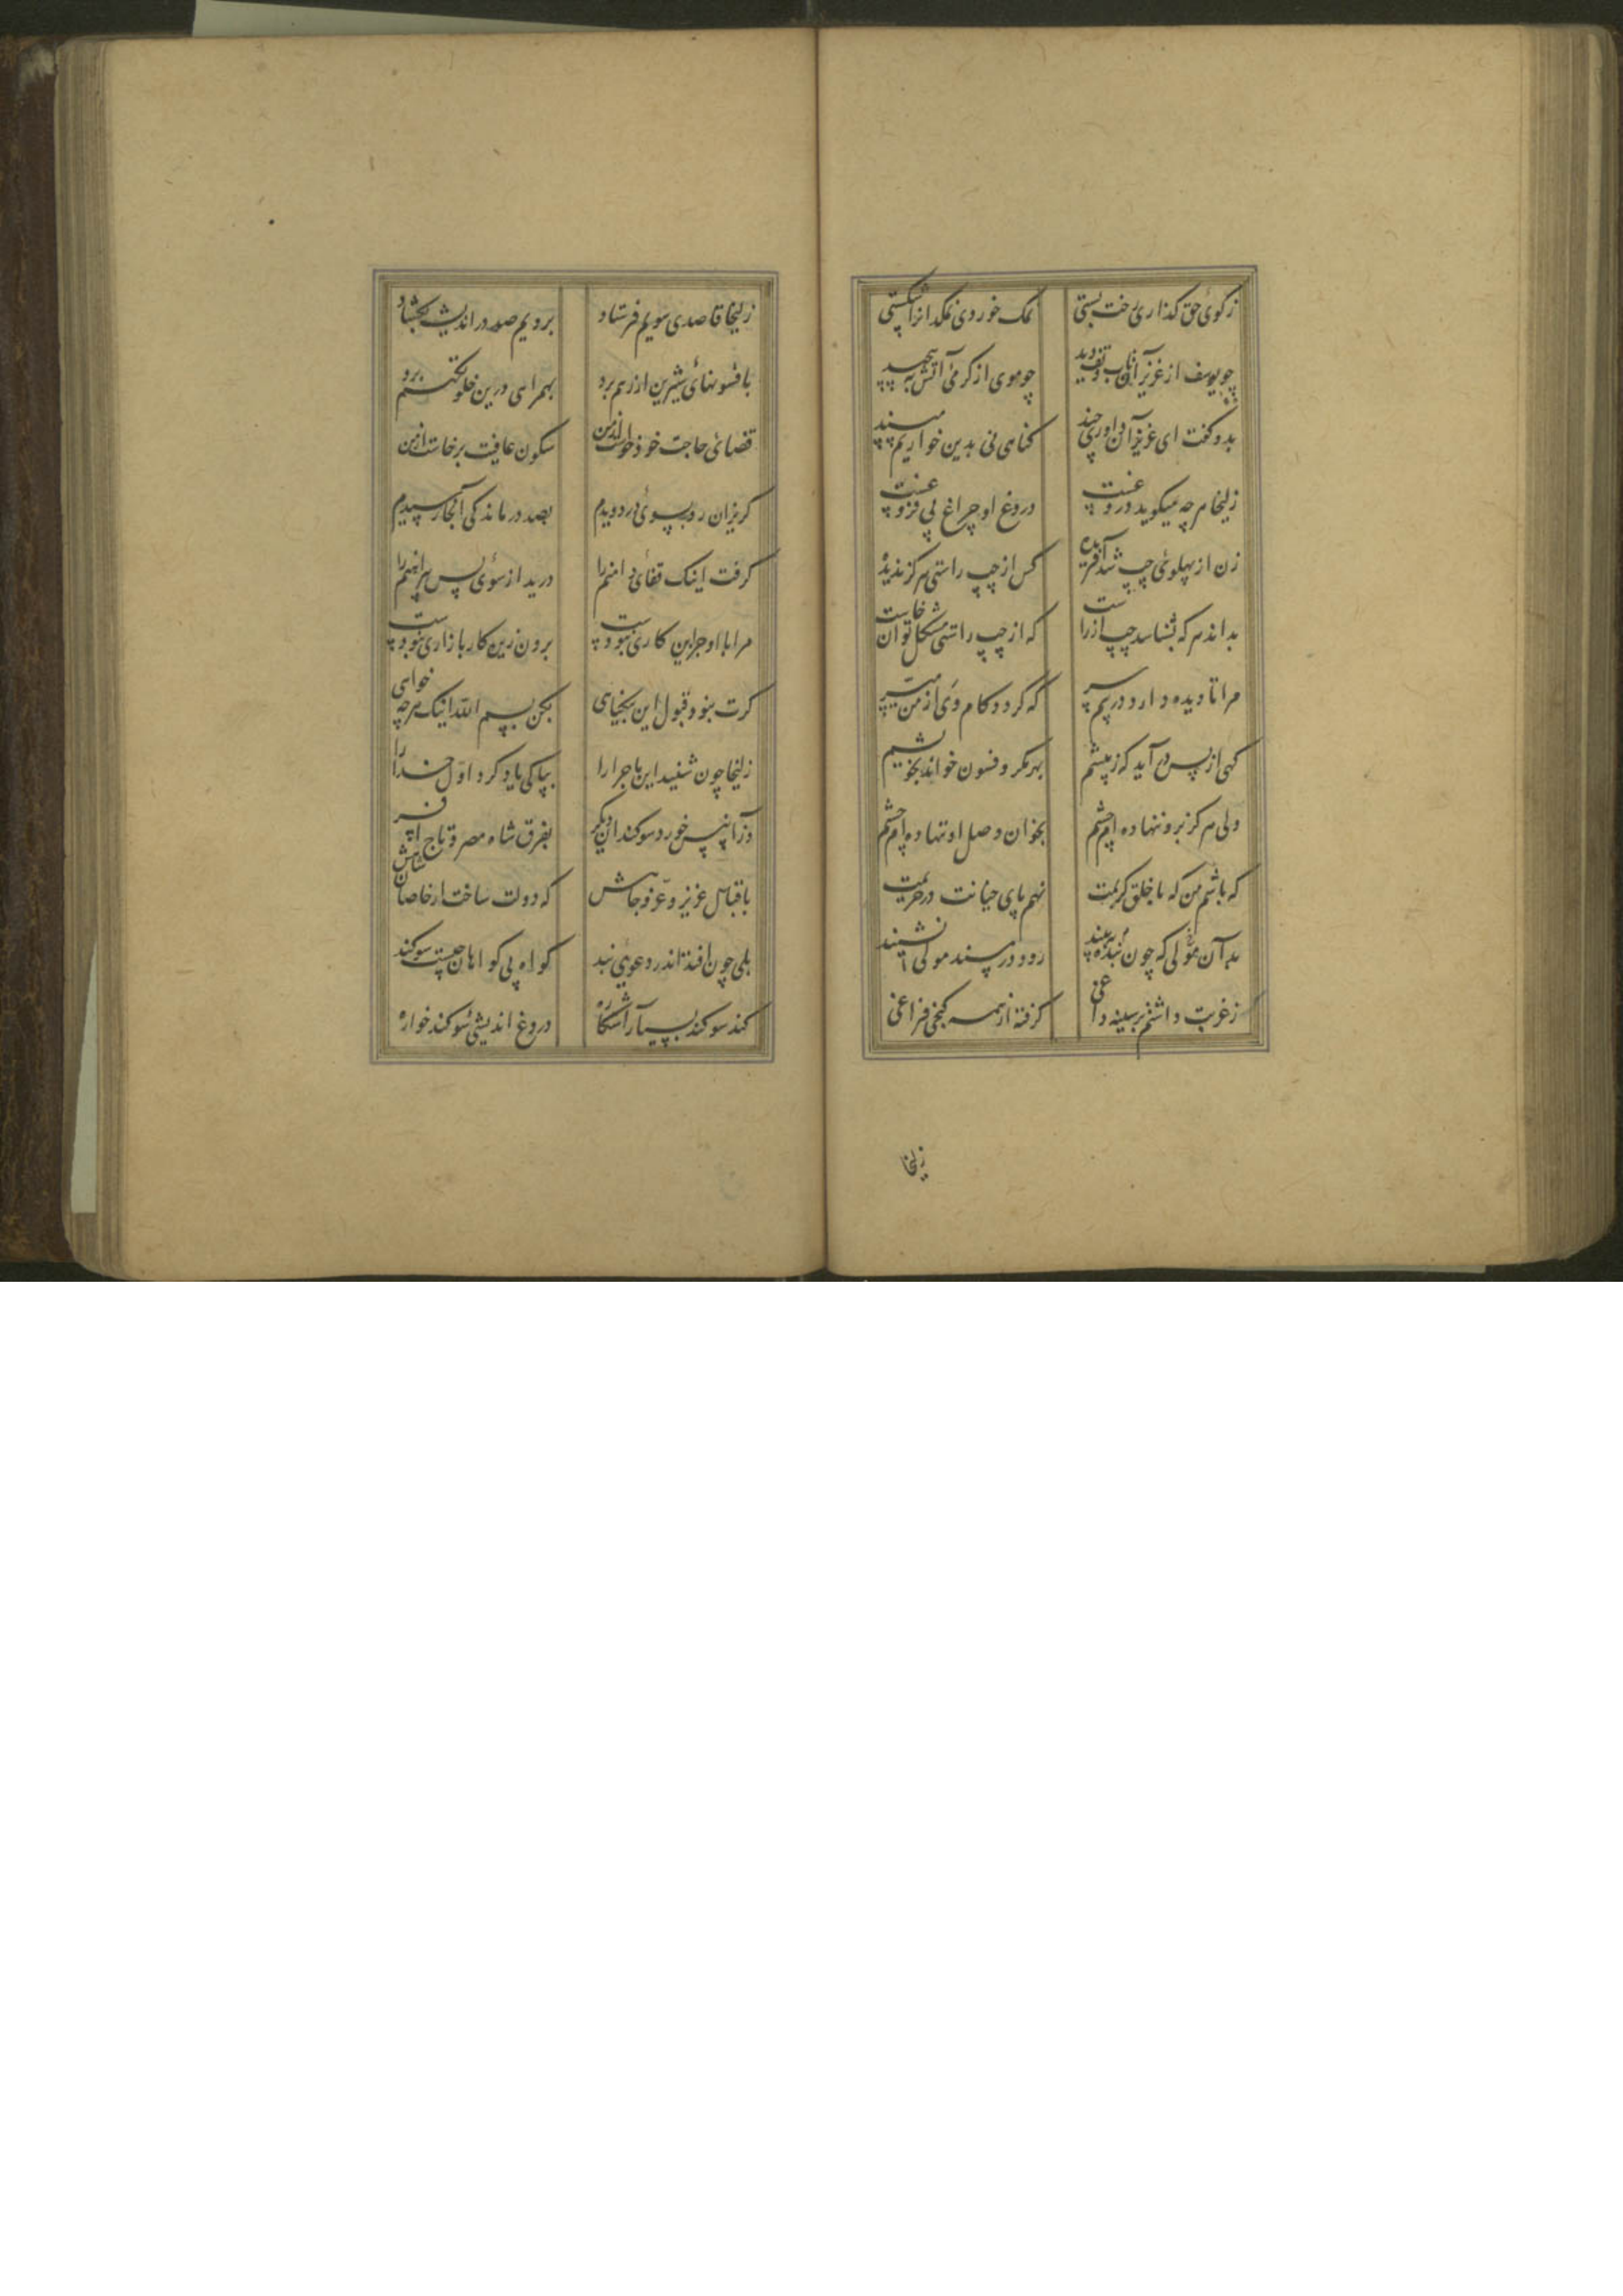 زکوی حق گذاری رخت بستی نمک خوردی نمکدانرا شکستی
چو یوسف از عزیز آن تاب و تف دید چو موی از گرمی آتش به پیچید
بدو گفت ای عزیز آن داوری چند گناهی نی بدین خواریم مپسند
زلیخا هر چه میگوید دروغست دروغ او چراغ بی فروغست
زن از پهلوی چپ شد آفریده کس از چپ راستی هرگز ندیده
بداند هر که بشناسد چپ از راست که از چپ راستی مشکل توان خاست
مرا تا دیده دارد در پیم سر که گردد کام وی از من میسر
گهی از پس در آید گه ز پیشم بهر مکر و فسون خواند بخویشم
ولی هرگز برو ننهاده ام چشم بخوان وصل او ننهاده ام چشم
که باشم من که با خلق کریمت نهم پای خیانت در حریمت
بد آن مولی که چون بنده نبیند رود در مسند مولی نشیند
ز غربت داشتم بر سینه داغی گرفته از همه کنجی فراغی
زلیخا
زلیخا قاصدی سویم فرستاد برویم صد در اندیشه بگشاد
بافسونهای شیرین از رهم برد بهمراهی درین خلوتگهم برد
قضای حاجت خود خواست از من سکون عافیت برخاست از من
گریزان رو بسوی در دویدم بصد درماندگی آنجا رسیدم
گرفت اینک قفای دامنم را درید از سوی پس پیراهنم را
مرا با او جز این کاری نبودست برون زین کار بازاری نبودست
گرت نبود قبول این بیگناهی بکن بسم الله اینک هر چه خواهی
زلیخا چون شنید این ماجرا را بپاکی یاد کرد اول خدا را
وز آن پس خورد سوگندان دیگر بفرق شاه مصر و تاج افسر
باقبال عزیز و عز و جاهش که دولت ساخت از خاصان شاهش
بلی چون افتد اندر دعوی بند گواه بی گواهان چیست سوگند
کند سوگند بسیار آشکاره دروغ اندیشی سوگند خواره